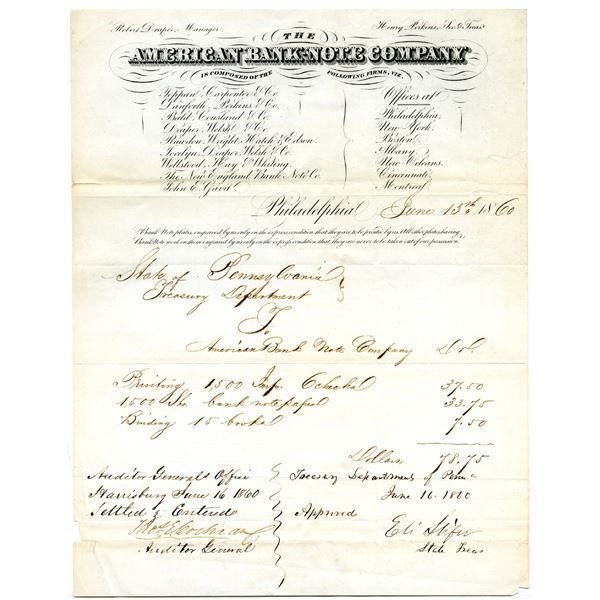 Robert Draper, Manager. Henry Perkins, Sec & Treas
THE
AMERICAN BANK-NOTE COMPANY
IS COMPOSED OF THE FOLLOWING FIRMS, VIZ.
Toppan, Carpenter & Co. Offices at
Danforth, Perkins & Co. Philadelphia.
Bald, Cousland & Co. New-York.
Draper, Welsh & Co. Boston.
Rawdon, Wright, Hatch & Edson. Albany.
Jocelyn, Draper, Welsh & Co. New Orleans.
Wellstood, Hay & Whiting. Cincinnati.
The New England Bank Note Co. Montreal.
John E. Gavit
Philadelphia June 15th 1860
Bank Note plates engraved by us only on the express condition that they are to be printed by us. All other plates having
Bank Note work on them engraved by us only on the express condition, that they are never to be taken out of our possession.
State of Pennsylvania
Treasury Department
To
American Bank Note Company Dr.
Printing 1,500 Imp. Checks 37.50
1,500 Shs bank note paper 33.75
Binding 15 books 7.50
Dollars 78.75
Auditor Generals Office Treasury Department of Penna
Harrisburg June 16 1860 June 16. 1860
Settled & Entered Approved
Thos E Cochran Eli Slifer
Auditor General State Treas